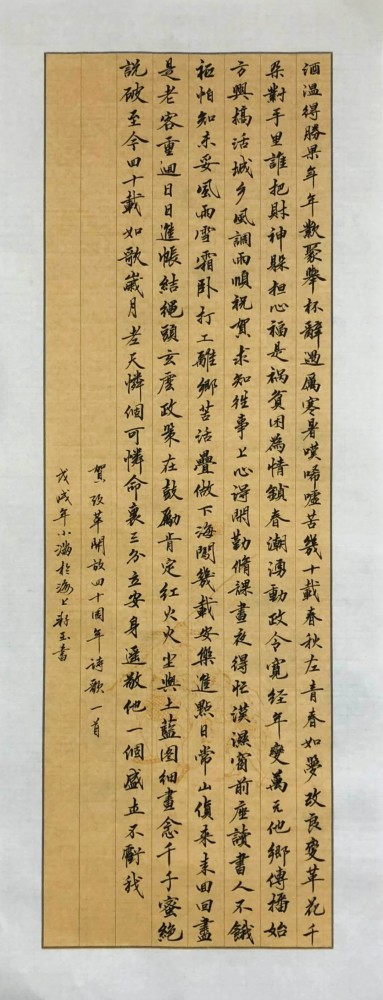 酒溫得勝果年年歡聚舉杯辭過厲寒暑嘆唏噓苦幾十載春秋左青春如夢改良變革花千
朵對手里誰把財神躲担心福是禍貧困為情鎖春潮湧動政令寬經年變萬元他鄉傳播始
方興搞活城乡風調雨順祝賀求知往事上心得開勤脩課晝夜得忙漠濕窗前座讀書人不餓
袥怕知未妥風雨雪霜卧打工離鄉苦活疊做下海闖幾載安樂進點日常山貨來未回回盡
是老客重迴日日進帳結繩頭玄虛政策在鼓勵肯定紅火火尘與土藍图細畫念千千蜜絕
説破至今四十載如歌歲月老天憐個可憐命裏三分立安身遥敬他一個盛世不虧我
賀改革開放四十周年詩歌一首
戊戌年小滿於海上
玉書